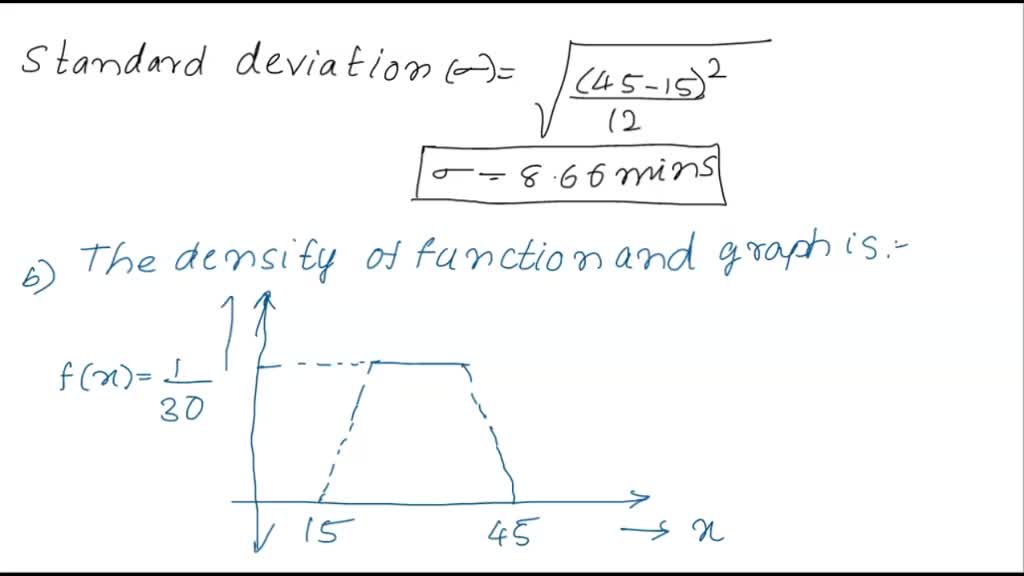 Standard deviation (σ) = √((45-15)²/12)
σ = 8.66 mins
b) The density of function and graph is :-
f(x) = 1/30
15 45 → x